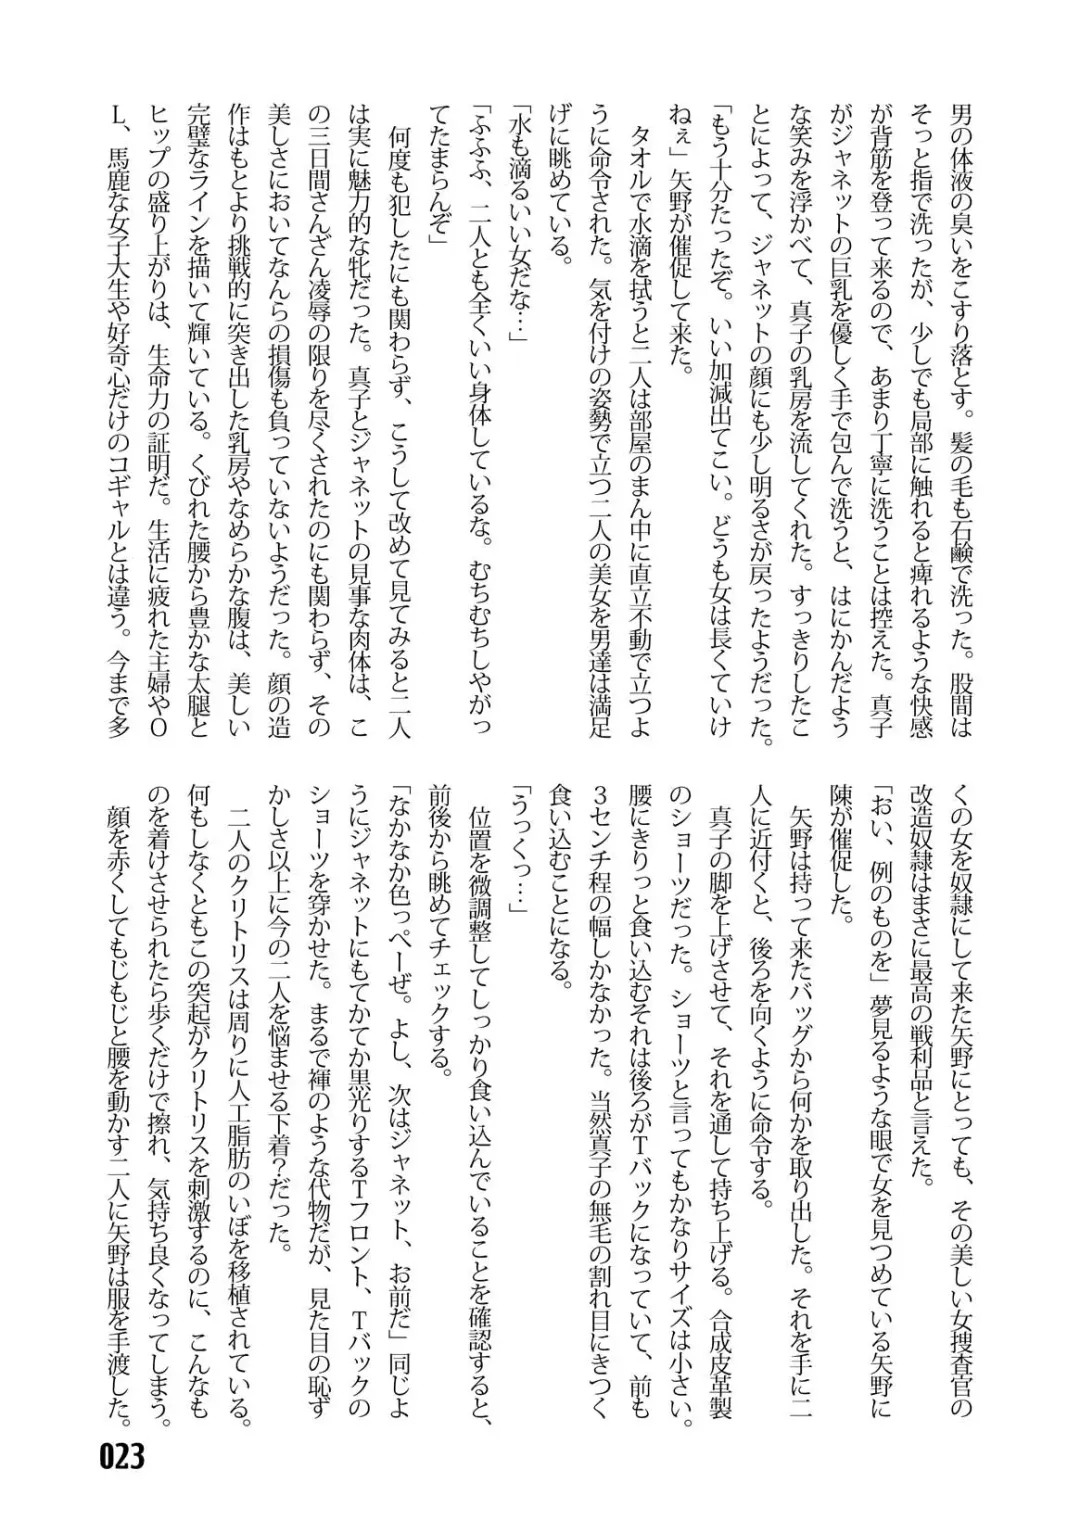 男の体液の臭いをこすり落とす。髪の毛も石鹸で洗った。股間は
そっと指で洗ったが、少しでも局部に触れると痺れるような快感
が背筋を登って来るので、あまり丁寧に洗うことは控えた。真子
がジャネットの巨乳を優しく手で包んで洗うと、はにかんだよう
な笑みを浮かべて、真子の乳房を流してくれた。すっきりしたこ
とによって、ジャネットの顔にも少し明るさが戻ったようだった。
「もう十分たったぞ。いい加減出てこい。どうも女は長くていけ
ねぇ」矢野が催促して来た。
タオルで水滴を拭うと二人は部屋のまん中に直立不動で立つよ
うに命令された。気を付けの姿勢で立つ二人の美女を男達は満足
げに眺めている。
「水も滴るいい女だな…」
「ふふふ、二人とも全くいい身体しているな。むちむちしやがっ
てたまらんぞ」
何度も犯したにも関わらず、こうして改めて見てみると二人
は実に魅力的な牝だった。真子とジャネットの見事な肉体は、こ
の三日間さんざん凌辱の限りを尽くされたのにも関わらず、その
美しさにおいてなんらの損傷も負っていないようだった。顔の造
作はもとより挑戦的に突き出した乳房やなめらかな腹は、美しい
完璧なラインを描いて輝いている。くびれた腰から豊かな太腿と
ヒップの盛り上がりは、生命力の証明だ。生活に疲れた主婦やO
L、馬鹿な女子大生や好奇心だけのコギャルとは違う。今まで多
くの女を奴隷にして来た矢野にとっても、その美しい女捜査官の
改造奴隷はまさに最高の戦利品と言えた。
「おい、例のものを」夢見るような眼で女を見つめている矢野に
陳が催促した。
矢野は持って来たバッグから何かを取り出した。それを手に二
人に近付くと、後ろを向くように命令する。
真子の脚を上げさせて、それを通して持ち上げる。合成皮革製
のショーツだった。ショーツと言ってもかなりサイズは小さい。
腰にきりっと食い込むそれは後ろがTバックになっていて、前も
3センチ程の幅しかなかった。当然真子の無毛の割れ目にきつく
食い込むことになる。
「うっくっ…」
位置を微調整してしっかり食い込んでいることを確認すると、
前後から眺めてチェックする。
「なかなか色っぺーぜ。よし、次はジャネット、お前だ」同じよ
うにジャネットにもてかてか黒光りするTフロント、Tバックの
ショーツを穿かせた。まるで褌のような代物だが、見た目の恥ず
かしさ以上に今の二人を悩ませる下着?だった。
二人のクリトリスは周りに人工脂肪のいぼを移植されている。
何もしなくともこの突起がクリトリスを刺激するのに、こんなも
のを着けさせられたら歩くだけで擦れ、気持ち良くなってしまう。
顔を赤くしてもじもじと腰を動かす二人に矢野は服を手渡した。
023